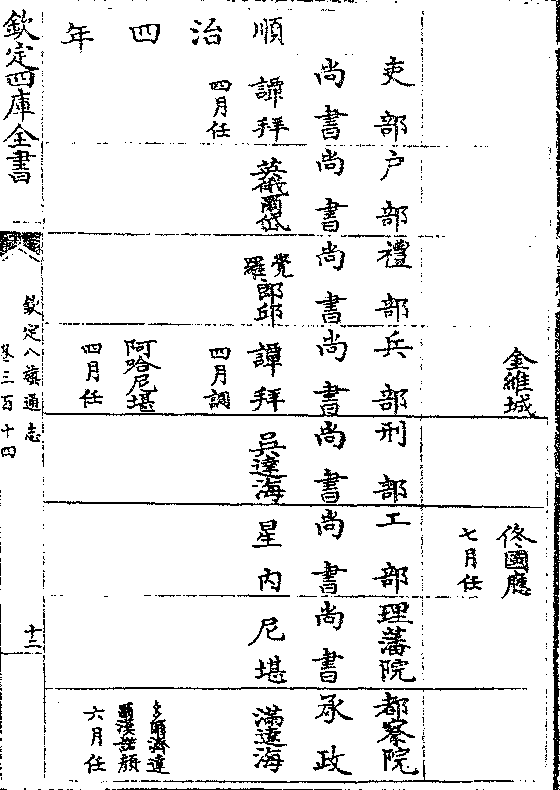 金維城
佟國應
七月任
吏部 户部 禮部 兵部 刑部 工部 理藩院 都察院
尚書 尚書 尚書 尚書 尚書 尚書 尚書 承政
順治四年
譚拜 英俄爾岱 覺羅郎邱 譚拜 吳達海 星内 尼堪 滿達海
四月任 四月調
阿哈尼堪 多爾濟達爾漢諾顔
四月任 六月任
欽定四庫全書
欽定八旗通志
卷三百十四
十二